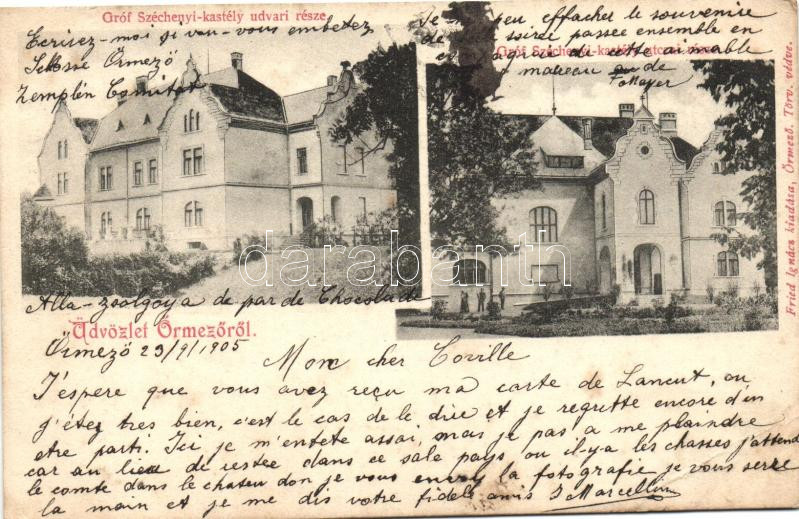 Gróf Széchenyi-kastély udvari része.
Ecrisez-moi si vou-vous embetez
Selosse Örmező
Zemplén Comitat
Je peu, effacher le souvenire
de soiree passee ensemble en
de cette aimable
Gróf Széchenyi-kastély utczai része.
morceau de
Mayer
Fried Ignácz kiadása, Örmező. Törv. védve.
darabanth.com
Alla-zsolgoya de par de Chocolade
Üdvözlet Örmezőről.
Örmező 23/9/1905
Mon cher Coville
J'espere que vous avez reçu ma carte de Lancut, ou
j'étez tres bien, c'est le cas de le dire et je regrette encore d'en
etre parti. Ici je m'entete assai, mais je pas a me plaindre
car au lieu de restee dans ce sale pays ou il-y-a les chasses j'attend
le comte dans le chateu don je vous envoy la fotografie je vous serre
la main et je me dis votre fidele amis J Marcellin